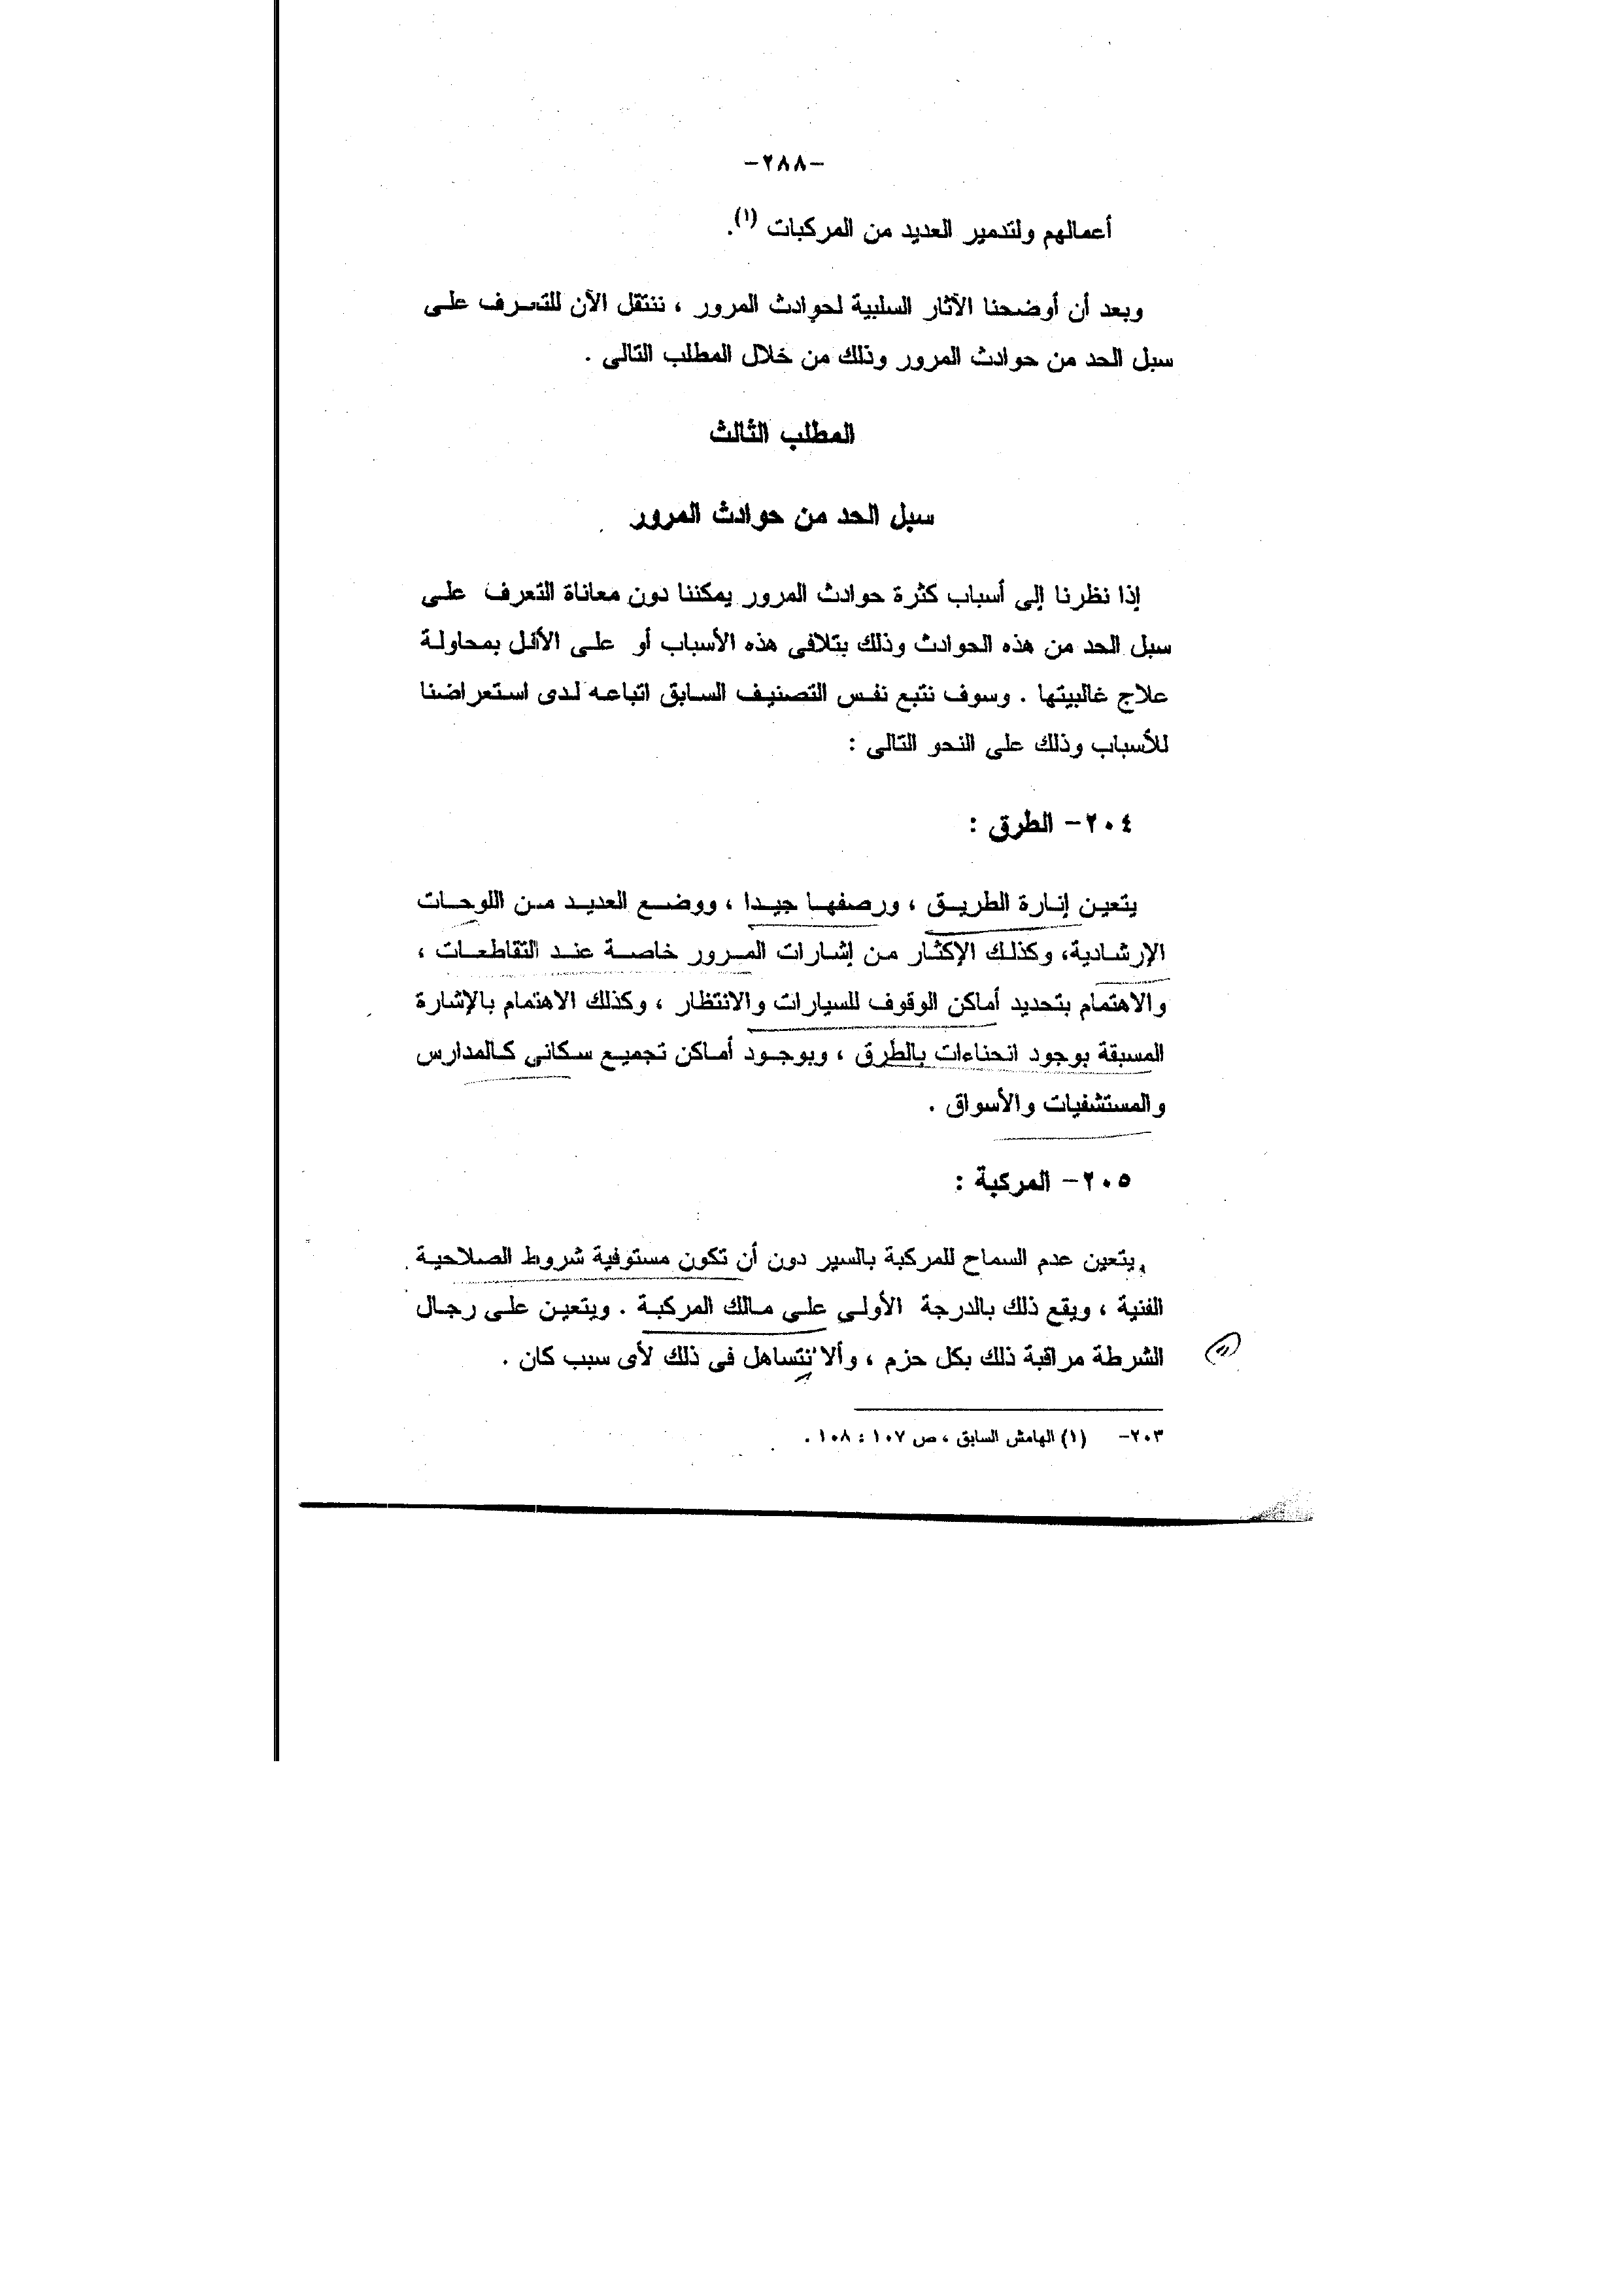 -٢٨٨-
أعمالهم ولتدمير العديد من المركبات (١).
وبعد أن أوضحنا الآثار السلبية لحوادث المرور ، ننتقل الآن للتعرف على
سبل الحد من حوادث المرور وذلك من خلال المطلب التالى .
المطلب الثالث
سبل الحد من حوادث المرور
إذا نظرنا إلى أسباب كثرة حوادث المرور يمكننا دون معاناة التعرف على
سبل الحد من هذه الحوادث وذلك بتلافى هذه الأسباب أو على الأقل بمحاولة
علاج غالبيتها . وسوف نتبع نفس التصنيف السابق اتباعه لدى استعراضنا
للأسباب وذلك على النحو التالى :
٢٠٤- الطرق :
يتعين إنارة الطريق ، ورصفها جيدا ، ووضع العديد من اللوحات
الإرشادية، وكذلك الإكثار من إشارات المرور خاصة عند التقاطعات ،
والاهتمام بتحديد أماكن الوقوف للسيارات والانتظار ، وكذلك الاهتمام بالإشارة
المسبقة بوجود انحناءات بالطرق ، وبوجود أماكن تجميع سكانى كالمدارس
والمستشفيات والأسواق .
٢٠٥- المركبة :
يتعين عدم السماح للمركبة بالسير دون أن تكون مستوفية شروط الصلاحية
الفنية ، ويقع ذلك بالدرجة الأولى على مالك المركبة . ويتعين على رجال
الشرطة مراقبة ذلك بكل حزم ، وألا نتساهل فى ذلك لأى سبب كان .
٢٠٣- (١) الهامش السابق ، ص ١٠٧ : ١٠٨ .